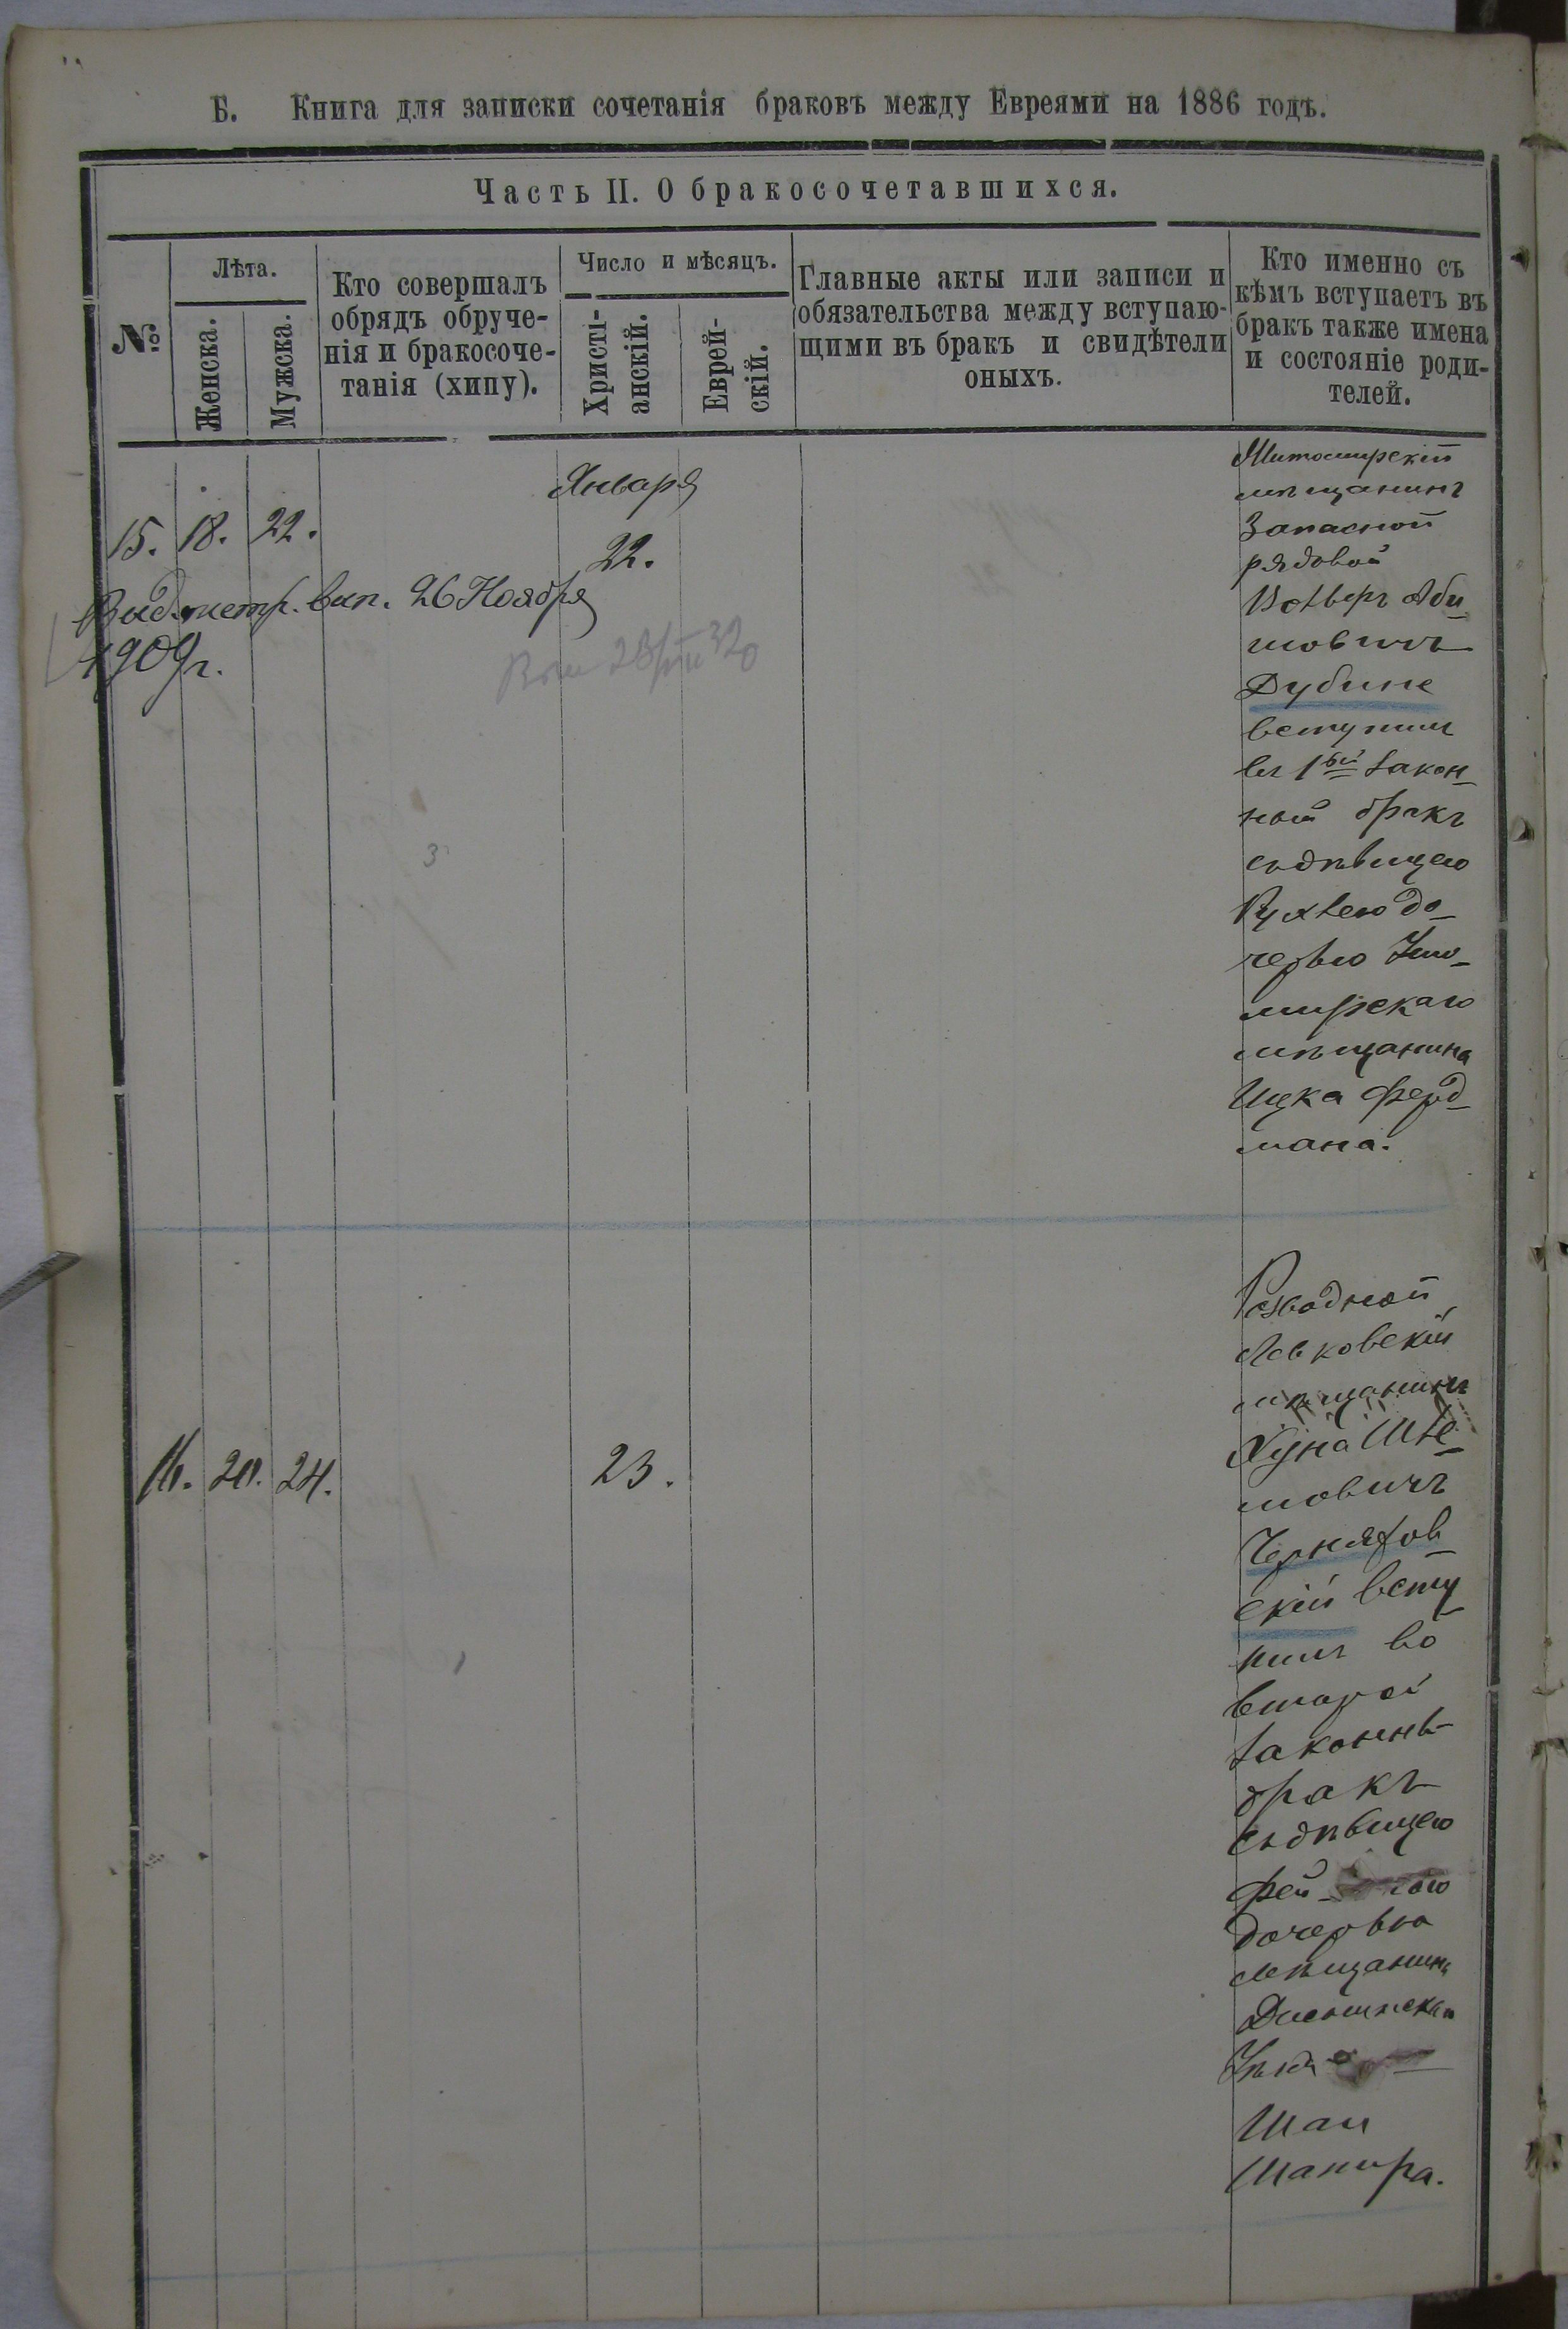 Б. Книга для записки сочетанія браковъ между Евреями на 1886 годъ.
Часть II. О бракосочетавшихся.
№
Лѣта.
Женска.
Мужска.
Кто совершалъ
обрядъ обруче-
нія и бракосоче-
танія (хипу).
Число и мѣсяцъ.
Христі-
анскій.
Еврей-
скій.
Главные акты или записи и
обязательства между вступаю-
щими въ бракъ и свидѣтели
оныхъ.
Кто именно съ
кѣмъ вступаетъ въ
бракъ также имена
и состояніе роди-
телей.
15. 18. 22.
Января
22.
Выд. метр. вып. 26 Ноября
1909 г.
Житомирскій
мѣщанинъ
Запасной
рядовой
Аби
мовичъ
Дубине
вступилъ
въ 1ый закон-
ный бракъ
съ дѣвицею
Рухлею до-
черью Жито-
мирскаго
мѣщанина
Ицка Ферд-
мана.
16. 20. 24.
23.
Разводной
Левковскій
мѣщанинъ
Хуна
мовичъ
Черняхов
скій всту
пилъ во
второй
законны-
бракъ
съ дѣвицею
Фей-
дочерью
мѣщанина
Шаи
Шапира.